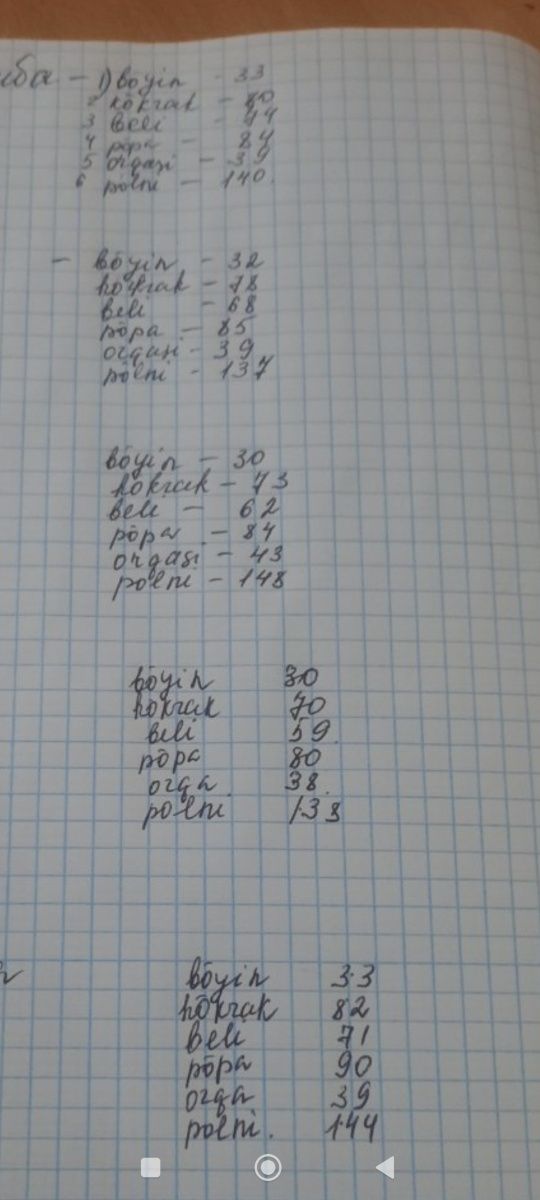 иба - 1) bōyin - 33
2 kōkrak - 80
3 beli - 74
4 pōpa - 84
5 orqasi - 39
6 pōlni - 140.
- bōyin - 32
kōkrak - 78
beli - 68
pōpa - 85
orqasi - 39
pōlni - 137
bōyin - 30
kōkrak - 73
beli - 62
pōpa - 84
orqasi - 43
pōlni - 148
bōyin 30
kōkrak 70
beli 59.
pōpa 80
orqa. 38.
pōlni 138
bōyin 33
kōkrak 82
beli 71
pōpa 90
orqa 39
pōlni. 144